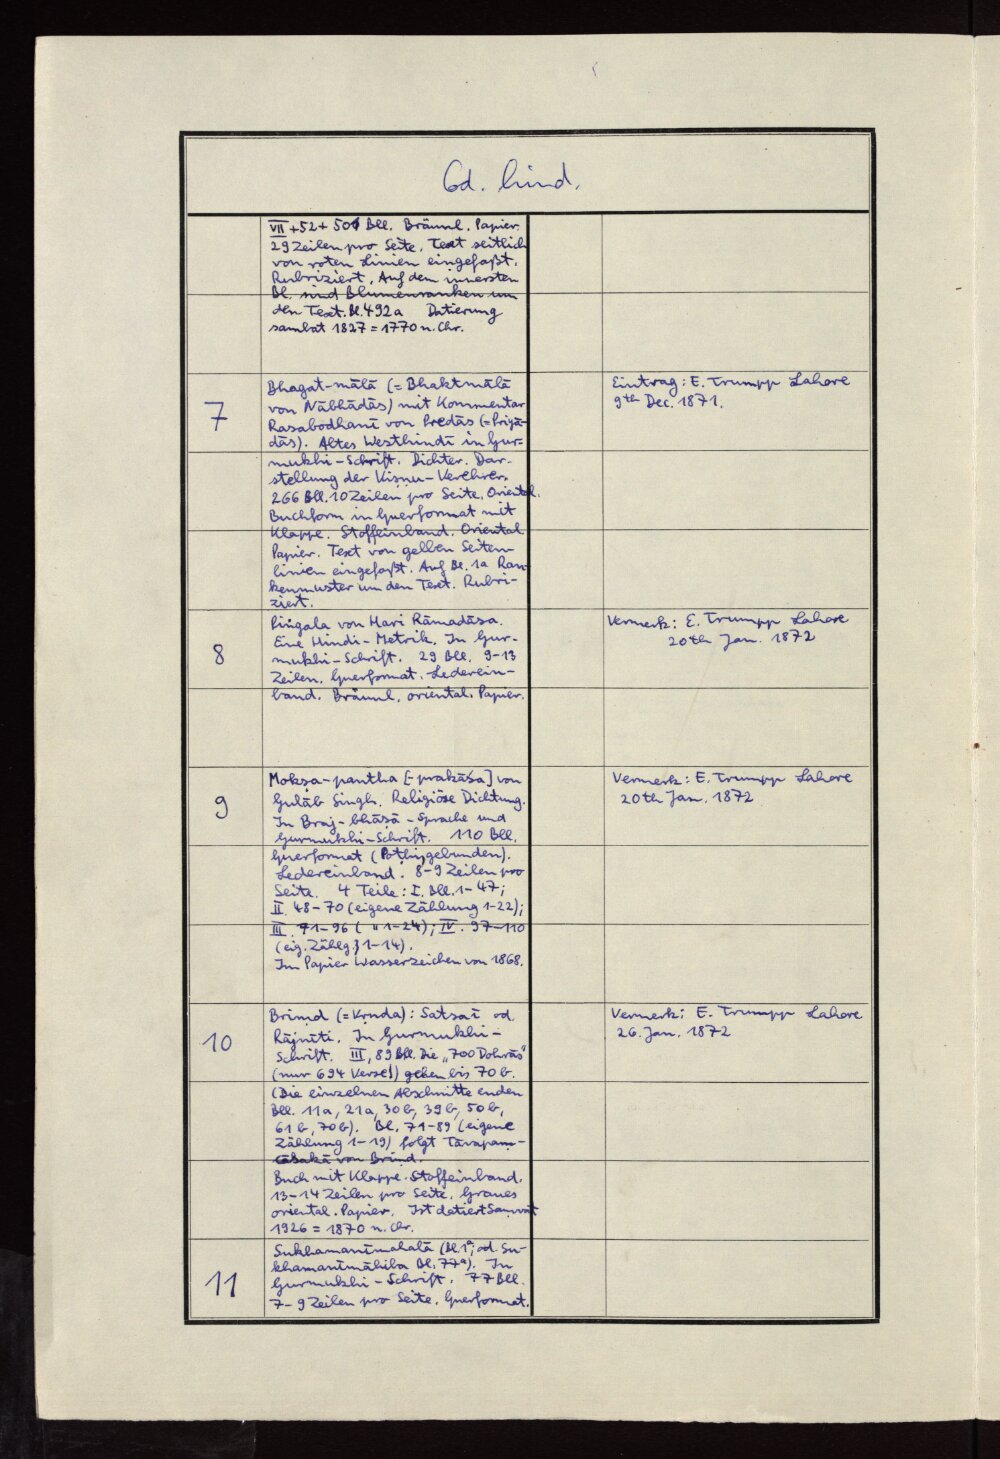 Cod. hind.
VII + 52 + 501 Bll. Bräunl. Papier.
29 Zeilen pro Seite. Text seitlich
von roten Linien eingefaßt.
Rubriziert. Auf den innersten
Bl. sind Blumenranken um
den Text. Bl. 492a Datierung
sambat 1827 = 1770 n. Chr.
7
Bhagat-mālā (= Bhaktmālā
von Nābhādās) mit Kommentar
Rasabodhanī von Predās (= Priyā-
dās). Altes Westhindī in Gur-
mukhi-Schrift. Dichter. Dar-
stellung der Viṣṇu-Verehrer.
266 Bll. 10 Zeilen pro Seite. Oriental.
Buchform in Querformat mit
Klappe. Stoffeinband. Oriental.
Papier. Text von gelben Seiten-
linien eingefaßt. Auf Bl. 1a Ran-
kenmuster um den Text. Rubri-
ziert.
Eintrag: E. Trumpp Lahore
9th Dec. 1871.
8
Piṅgala von Hari Rāmadāsa.
Eine Hindi-Metrik. In Gur-
mukhi-Schrift. 29 Bll. 9-13
Zeilen. Querformat. Lederein-
band. Bräunl. oriental. Papier.
Vermerk: E. Trumpp Lahore
20th Jan. 1872
9
Mokṣa-pantha [-prakāśa] von
Gulāb Singh. Religiöse Dichtung.
In Braj-bhāṣā-Sprache und
Gurmukhi-Schrift. 110 Bll.
Querformat (Pothi, gebunden).
Ledereinband. 8-9 Zeilen pro
Seite. 4 Teile: I. Bll. 1-47;
II. 48-70 (eigene Zählung 1-22);
III. 71-96 ( " 1-24); IV. 97-110
(eig. Zählg. 1-14).
Im Papier Wasserzeichen von 1868.
Vermerk: E. Trumpp Lahore
20th Jan. 1872
10
Brimd (= Vṛnda): Satsaī od.
Rājnīti. In Gurmukhi-
Schrift. III, 89 Bll. Die „700 Dohrās"
(nur 694 Verse!) gehen bis 70b.
(Die einzelnen Abschnitte enden
Bll. 11a, 21a, 30b, 39b, 50b,
61b, 70b). Bl. 71-89 (eigene
Zählung 1-19) folgt
von Brind.
Buch mit Klappe. Stoffeinband.
13-14 Zeilen pro Seite. Graues
oriental. Papier. Ist datiert Samvat
1926 = 1870 n. Chr.
Vermerk: E. Trumpp Lahore
26. Jan. 1872
11
Sukhamanīmahalā (Bl. 1a; od. Su-
khamanīmāhila Bl. 77a). In
Gurmukhi-Schrift. 77 Bll.
7-9 Zeilen pro Seite. Querformat.